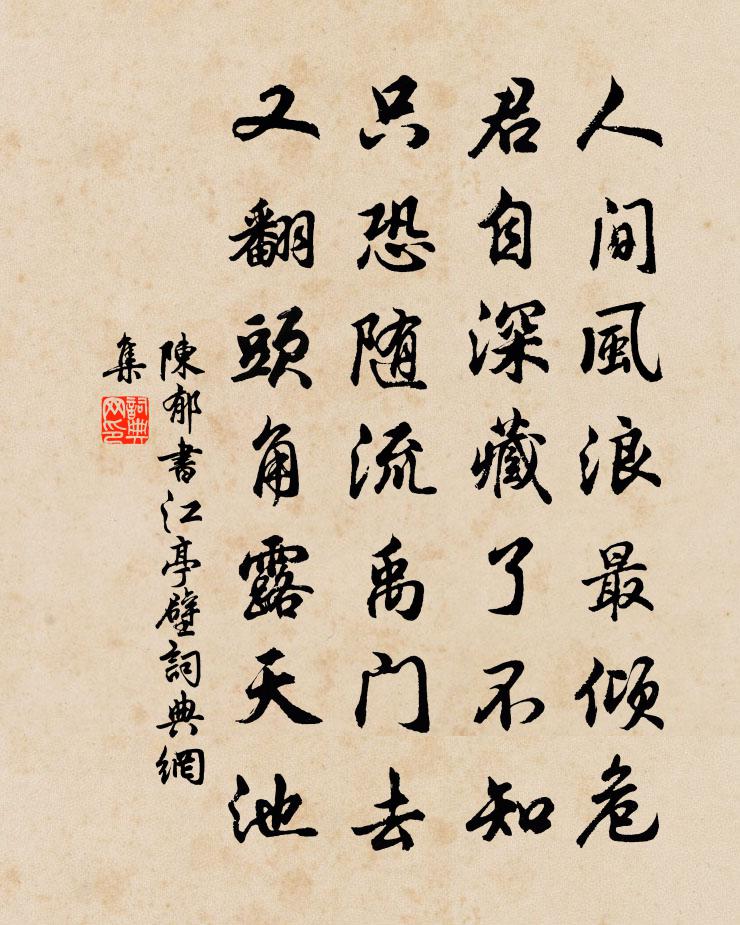 人間風浪最傾危
君自深藏了不知
只恐随流禹门去
又翻頭角露天池
陳郁書江亭壁詞典網
集
詞典网印